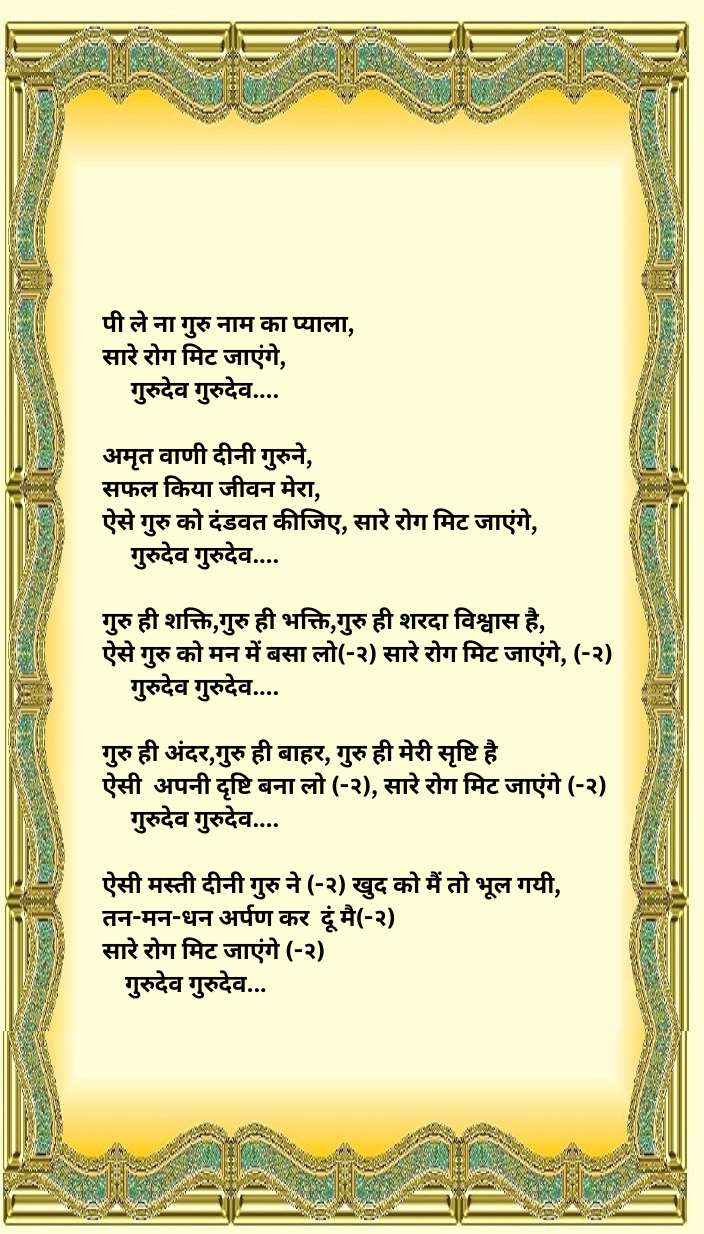 पी ले ना गुरु नाम का प्याला,
सारे रोग मिट जाएंगे,
गुरुदेव गुरुदेव....
अमृत वाणी दीनी गुरुने,
सफल किया जीवन मेरा,
ऐसे गुरु को दंडवत कीजिए, सारे रोग मिट जाएंगे,
गुरुदेव गुरुदेव....
गुरु ही शक्ति,गुरु ही भक्ति,गुरु ही शरदा विश्वास है,
ऐसे गुरु को मन में बसा लो(-२) सारे रोग मिट जाएंगे, (-२)
गुरुदेव गुरुदेव....
गुरु ही अंदर,गुरु ही बाहर, गुरु ही मेरी सृष्टि है
ऐसी  अपनी दृष्टि बना लो (-२), सारे रोग मिट जाएंगे (-२)
गुरुदेव गुरुदेव....
ऐसी मस्ती दीनी गुरु ने (-२) खुद को मैं तो भूल गयी,
तन-मन-धन अर्पण कर  दूं मै(-२)
सारे रोग मिट जाएंगे (-२)
गुरुदेव गुरुदेव...